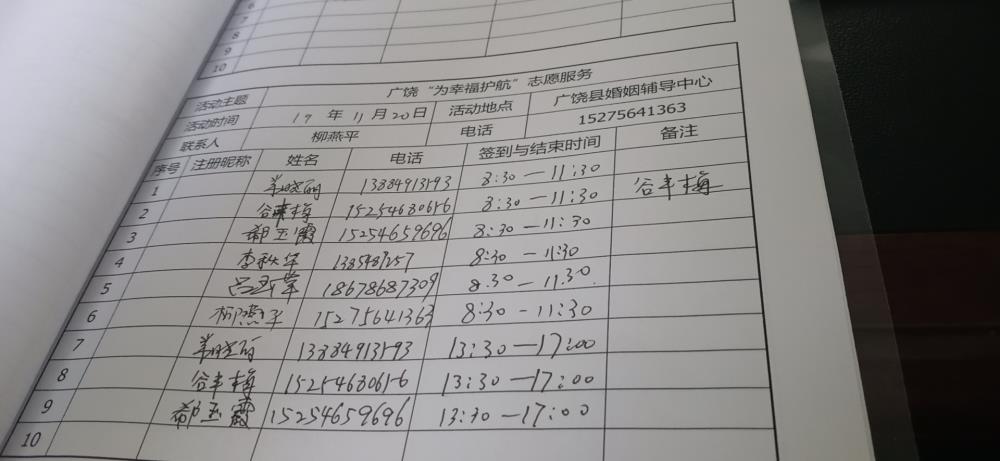 7
8
9
10
活动主题 广饶“为幸福护航”志愿服务
活动时间 17 年 11 月 20 日 活动地点 广饶县婚姻辅导中心
联系人 柳燕平 电话 15275641363
序号 注册昵称 姓名 电话 签到与结束时间 备注
1 13884913193 8:30—11:30
2 谷丰梅 15254680616 8:30—11:30 谷丰梅
3 郗玉霞 15254659696 8:30—11:30
4 李秋华 8:30—11:30
5 吕玉荣 18678687309 8.30—11.30
6 柳燕平 15275641363 8:30-11:30
7 13884913193 13:30—17:00
8 谷丰梅 15254680616 13:30—17:00
9 郗玉霞 15254659696 13:30—17:00
10